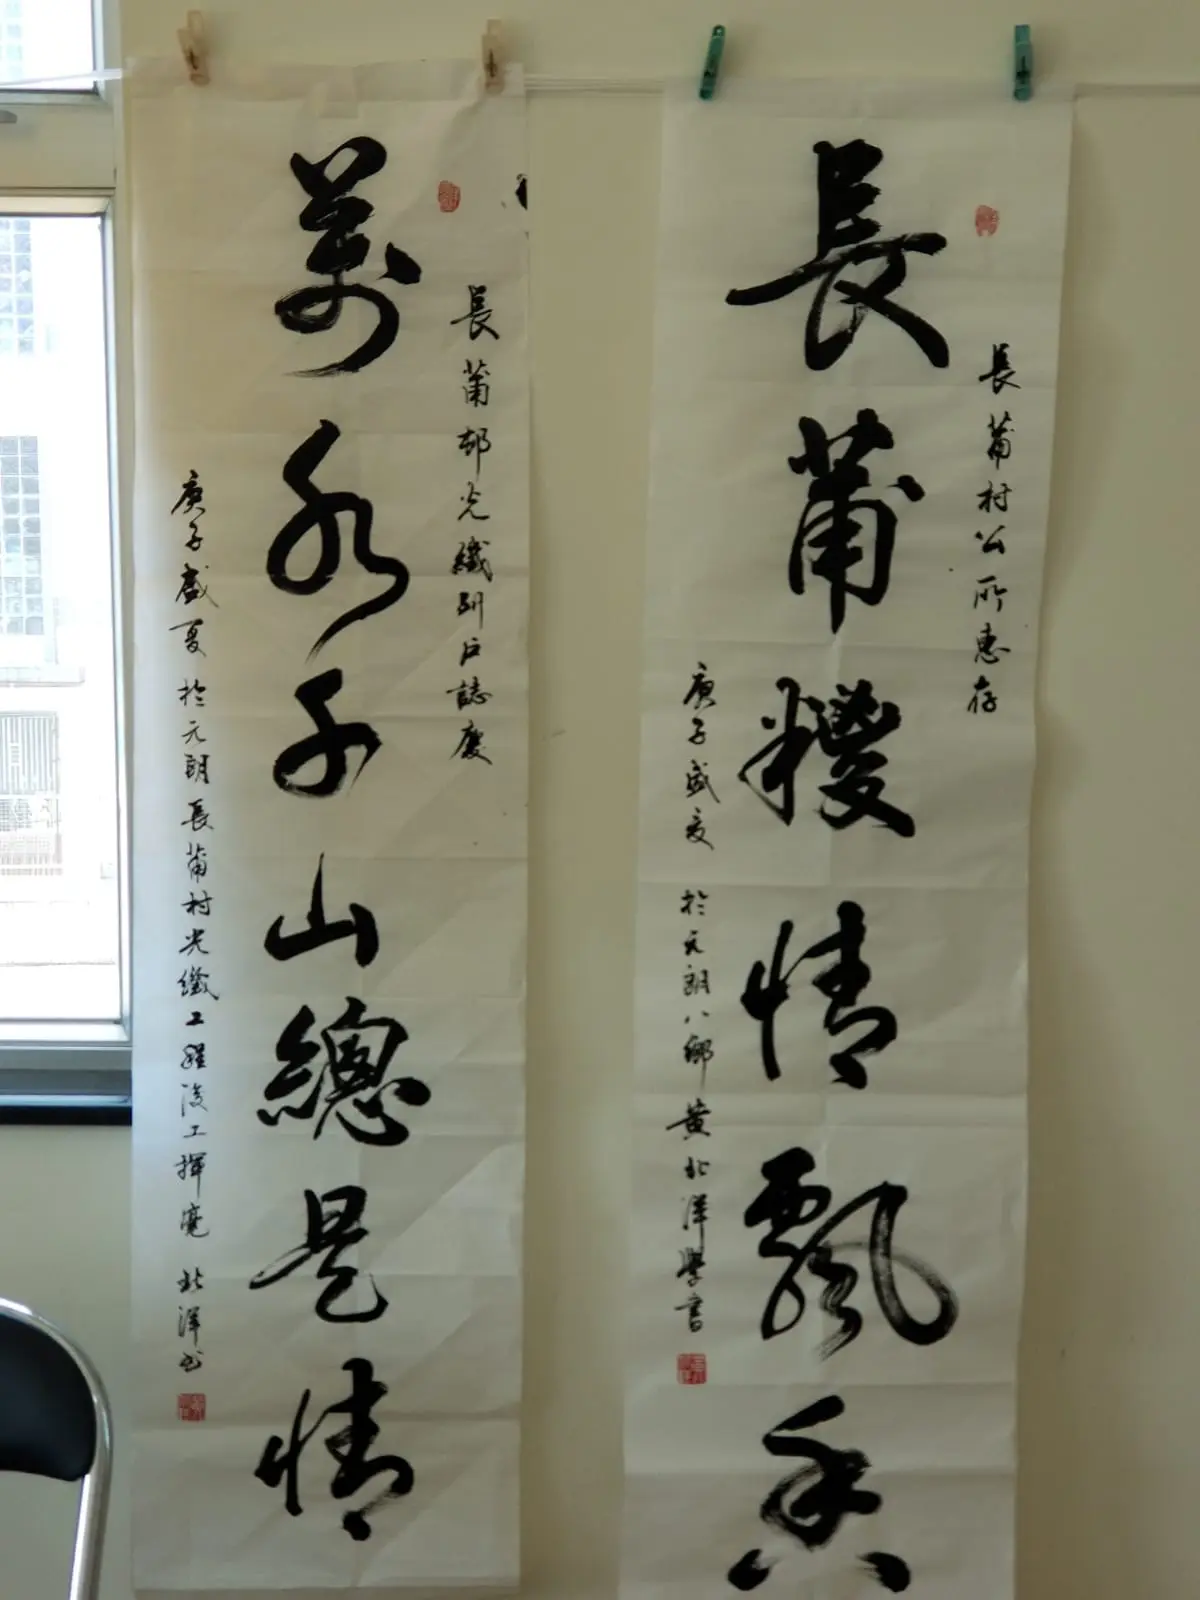 長莆村公所惠存
長莆稷情飄香
庚子盛夏 於元朗八鄉 黄北洋學書
長莆邨光纖到户誌慶
萬水千山總是情
庚子盛夏 於元朗長莆村光纖工程竣工揮毫 北洋書